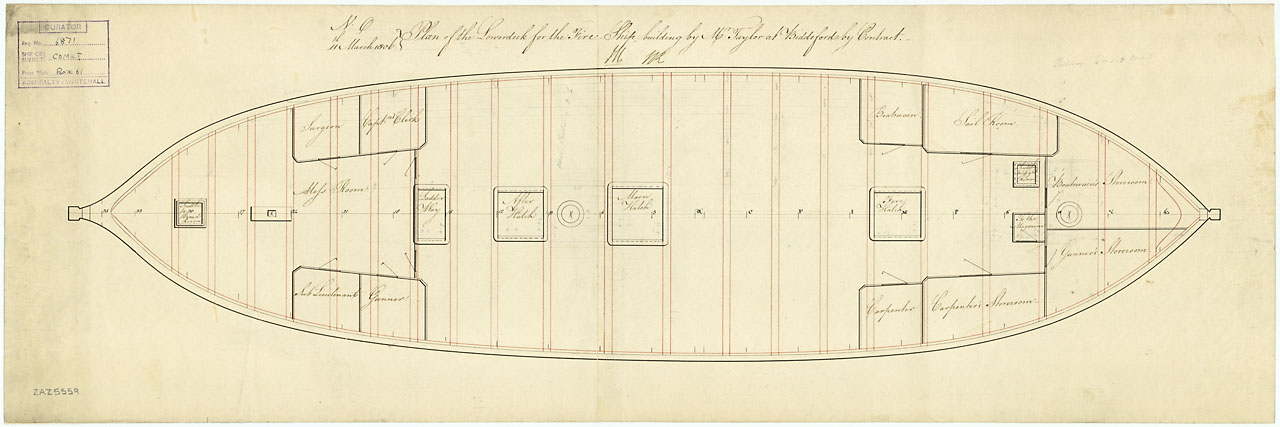 CURATOR
Reg. No. 6871
SHIP OR SUBJECT COMET
Box 61
ADMIRALTY WHITEHALL
N. O.
11 March 1806
Plan of the Lowerdeck for the Fire Ship building by Mr. Taylor at Biddeford by Contract.
Surgeon
Captns Clerk
Boatswain
Sail Room
Mess Room
Ladder Way
After Hatch
Main Hatch
Fore Hatch
To the Magazine
Boatswain's Storeroom
Gunner's Storeroom
Sub Lieutenant
Gunner
Carpenter
Carpenter's Storeroom
ZAZ5559